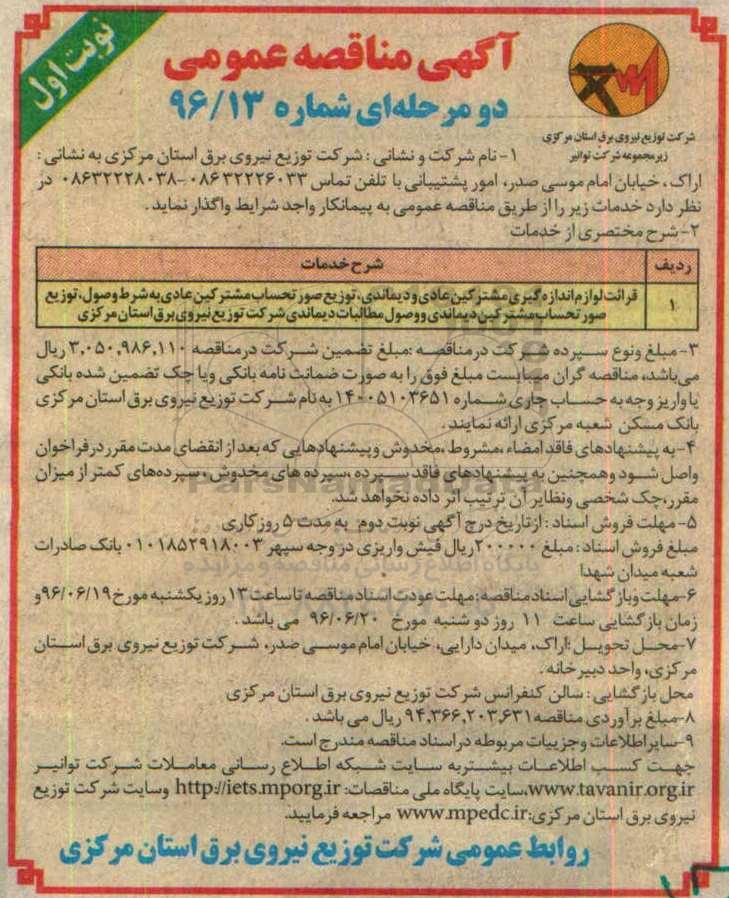 نوبت اول
آگهی مناقصه عمومی
دو مرحله‌ای شماره ۹۶/۱۳
شرکت توزیع نیروی برق استان مرکزی
زیرمجموعه شرکت توانیر
۱- نام شرکت و نشانی : شرکت توزیع نیروی برق استان مرکزی به نشانی :
اراک ، خیابان امام موسی صدر، امور پشتیبانی با تلفن تماس ۰۸۶۳۲۲۲۶۰۳۳-۰۸۶۳۲۲۲۸۰۳۸ در
نظر دارد خدمات زیر را از طریق مناقصه عمومی به پیمانکار واجد شرایط واگذار نماید .
۲- شرح مختصری از خدمات
ردیف شرح خدمات
۱ قرائت لوازم اندازه گیری مشترکین عادی و دیماندی، توزیع صورتحساب مشترکین عادی به شرط وصول، توزیع
صورتحساب مشترکین دیماندی و وصول مطالبات دیماندی شرکت توزیع نیروی برق استان مرکزی
۳- مبلغ ونوع سپرده شرکت درمناقصه :مبلغ تضمین شرکت درمناقصه ۳,۰۵۰,۹۸۶,۱۱۰ ریال
می‌باشد، مناقصه گران میبایست مبلغ فوق را به صورت ضمانت نامه بانکی ویا چک تضمین شده بانکی
یا واریز وجه به حساب جاری شماره ۱۴۰۰۵۱۰۳۶۵۱ به نام شرکت توزیع نیروی برق استان مرکزی
بانک مسکن شعبه مرکزی ارائه نمایند .
۴- به پیشنهادهای فاقد امضاء ،مشروط ،مخدوش وپیشنهادهایی که بعد از انقضای مدت مقرر درفراخوان
واصل شود وهمچنین به پیشنهادهای فاقد سپرده ،سپرده های مخدوش ، سپرده‌های کمتر از میزان
مقرر،چک شخصی ونظایر آن ترتیب اثر داده نخواهد شد.
۵- مهلت فروش اسناد : ازتاریخ درج آگهی نوبت دوم به مدت ۵ روز کاری
مبلغ فروش اسناد : مبلغ ۲۰۰۰۰۰ ریال فیش واریزی در وجه سپهر ۰۱۰۱۸۵۲۹۱۸۰۰۳ بانک صادرات
شعبه میدان شهدا
۶-مهلت وبازگشایی اسناد مناقصه :مهلت عودت اسناد مناقصه تا ساعت ۱۳ روز یکشنبه مورخ ۹۶/۰۶/۱۹و
زمان بازگشایی ساعت ۱۱ روز دو شنبه مورخ ۹۶/۰۶/۲۰ می باشد .
۷-محل تحویل :اراک، میدان دارایی، خیابان امام موسی صدر، شرکت توزیع نیروی برق استان
مرکزی، واحد دبیرخانه .
محل بازگشایی : سالن کنفرانس شرکت توزیع نیروی برق استان مرکزی
۸-مبلغ برآوردی مناقصه ۹۴,۳۶۶,۲۰۳,۶۳۱ ریال می باشد .
۹-سایر اطلاعات وجزییات مربوطه دراسناد مناقصه مندرج است.
جهت کسب اطلاعات بیشتربه سایت شبکه اطلاع رسانی معاملات شرکت توانیر
www.tavanir.org.ir،سایت پایگاه ملی مناقصات: http://iets.mporg.ir وسایت شرکت توزیع
نیروی برق استان مرکزی:www.mpedc.ir مراجعه فرمایید.
روابط عمومی شرکت توزیع نیروی برق استان مرکزی